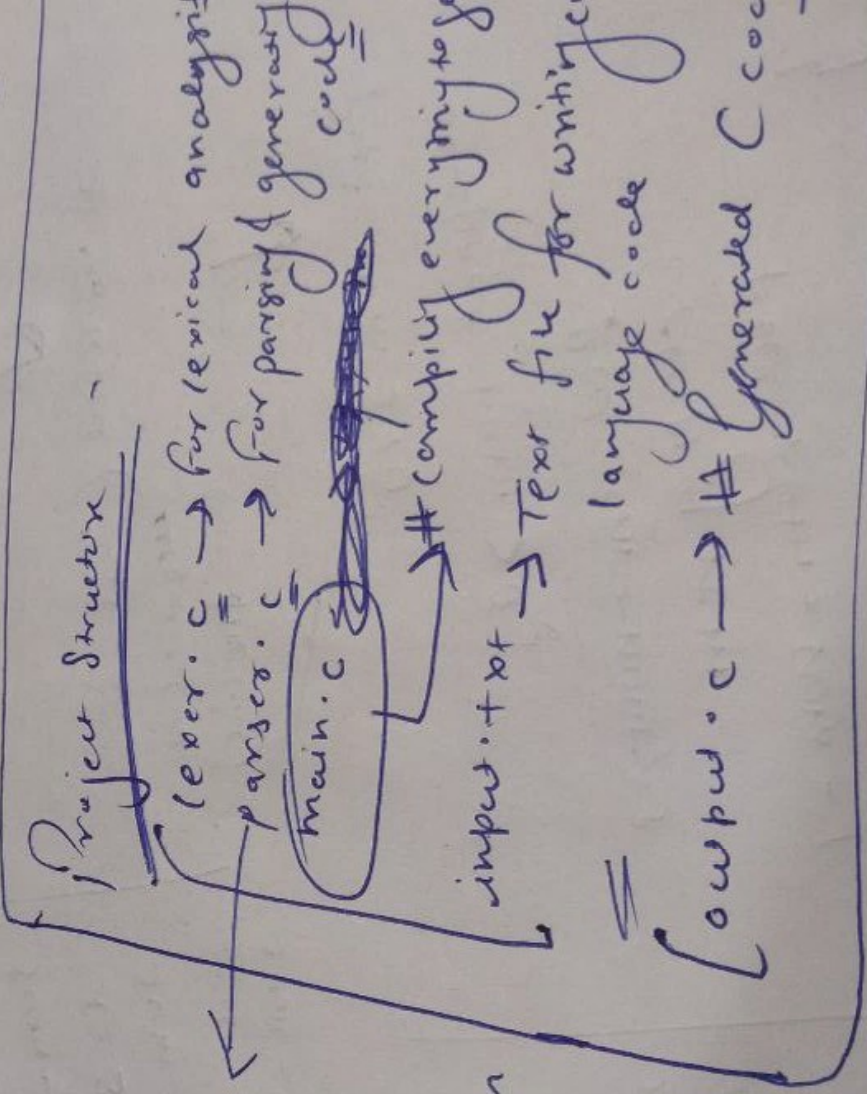 Project Structure -
lexer.c → for lexical analysis
parser.c → for parsing & generating
code
main.c
# compiling everything tog
input.txt → Text file for writing
language code
output.c → # Generated C cod